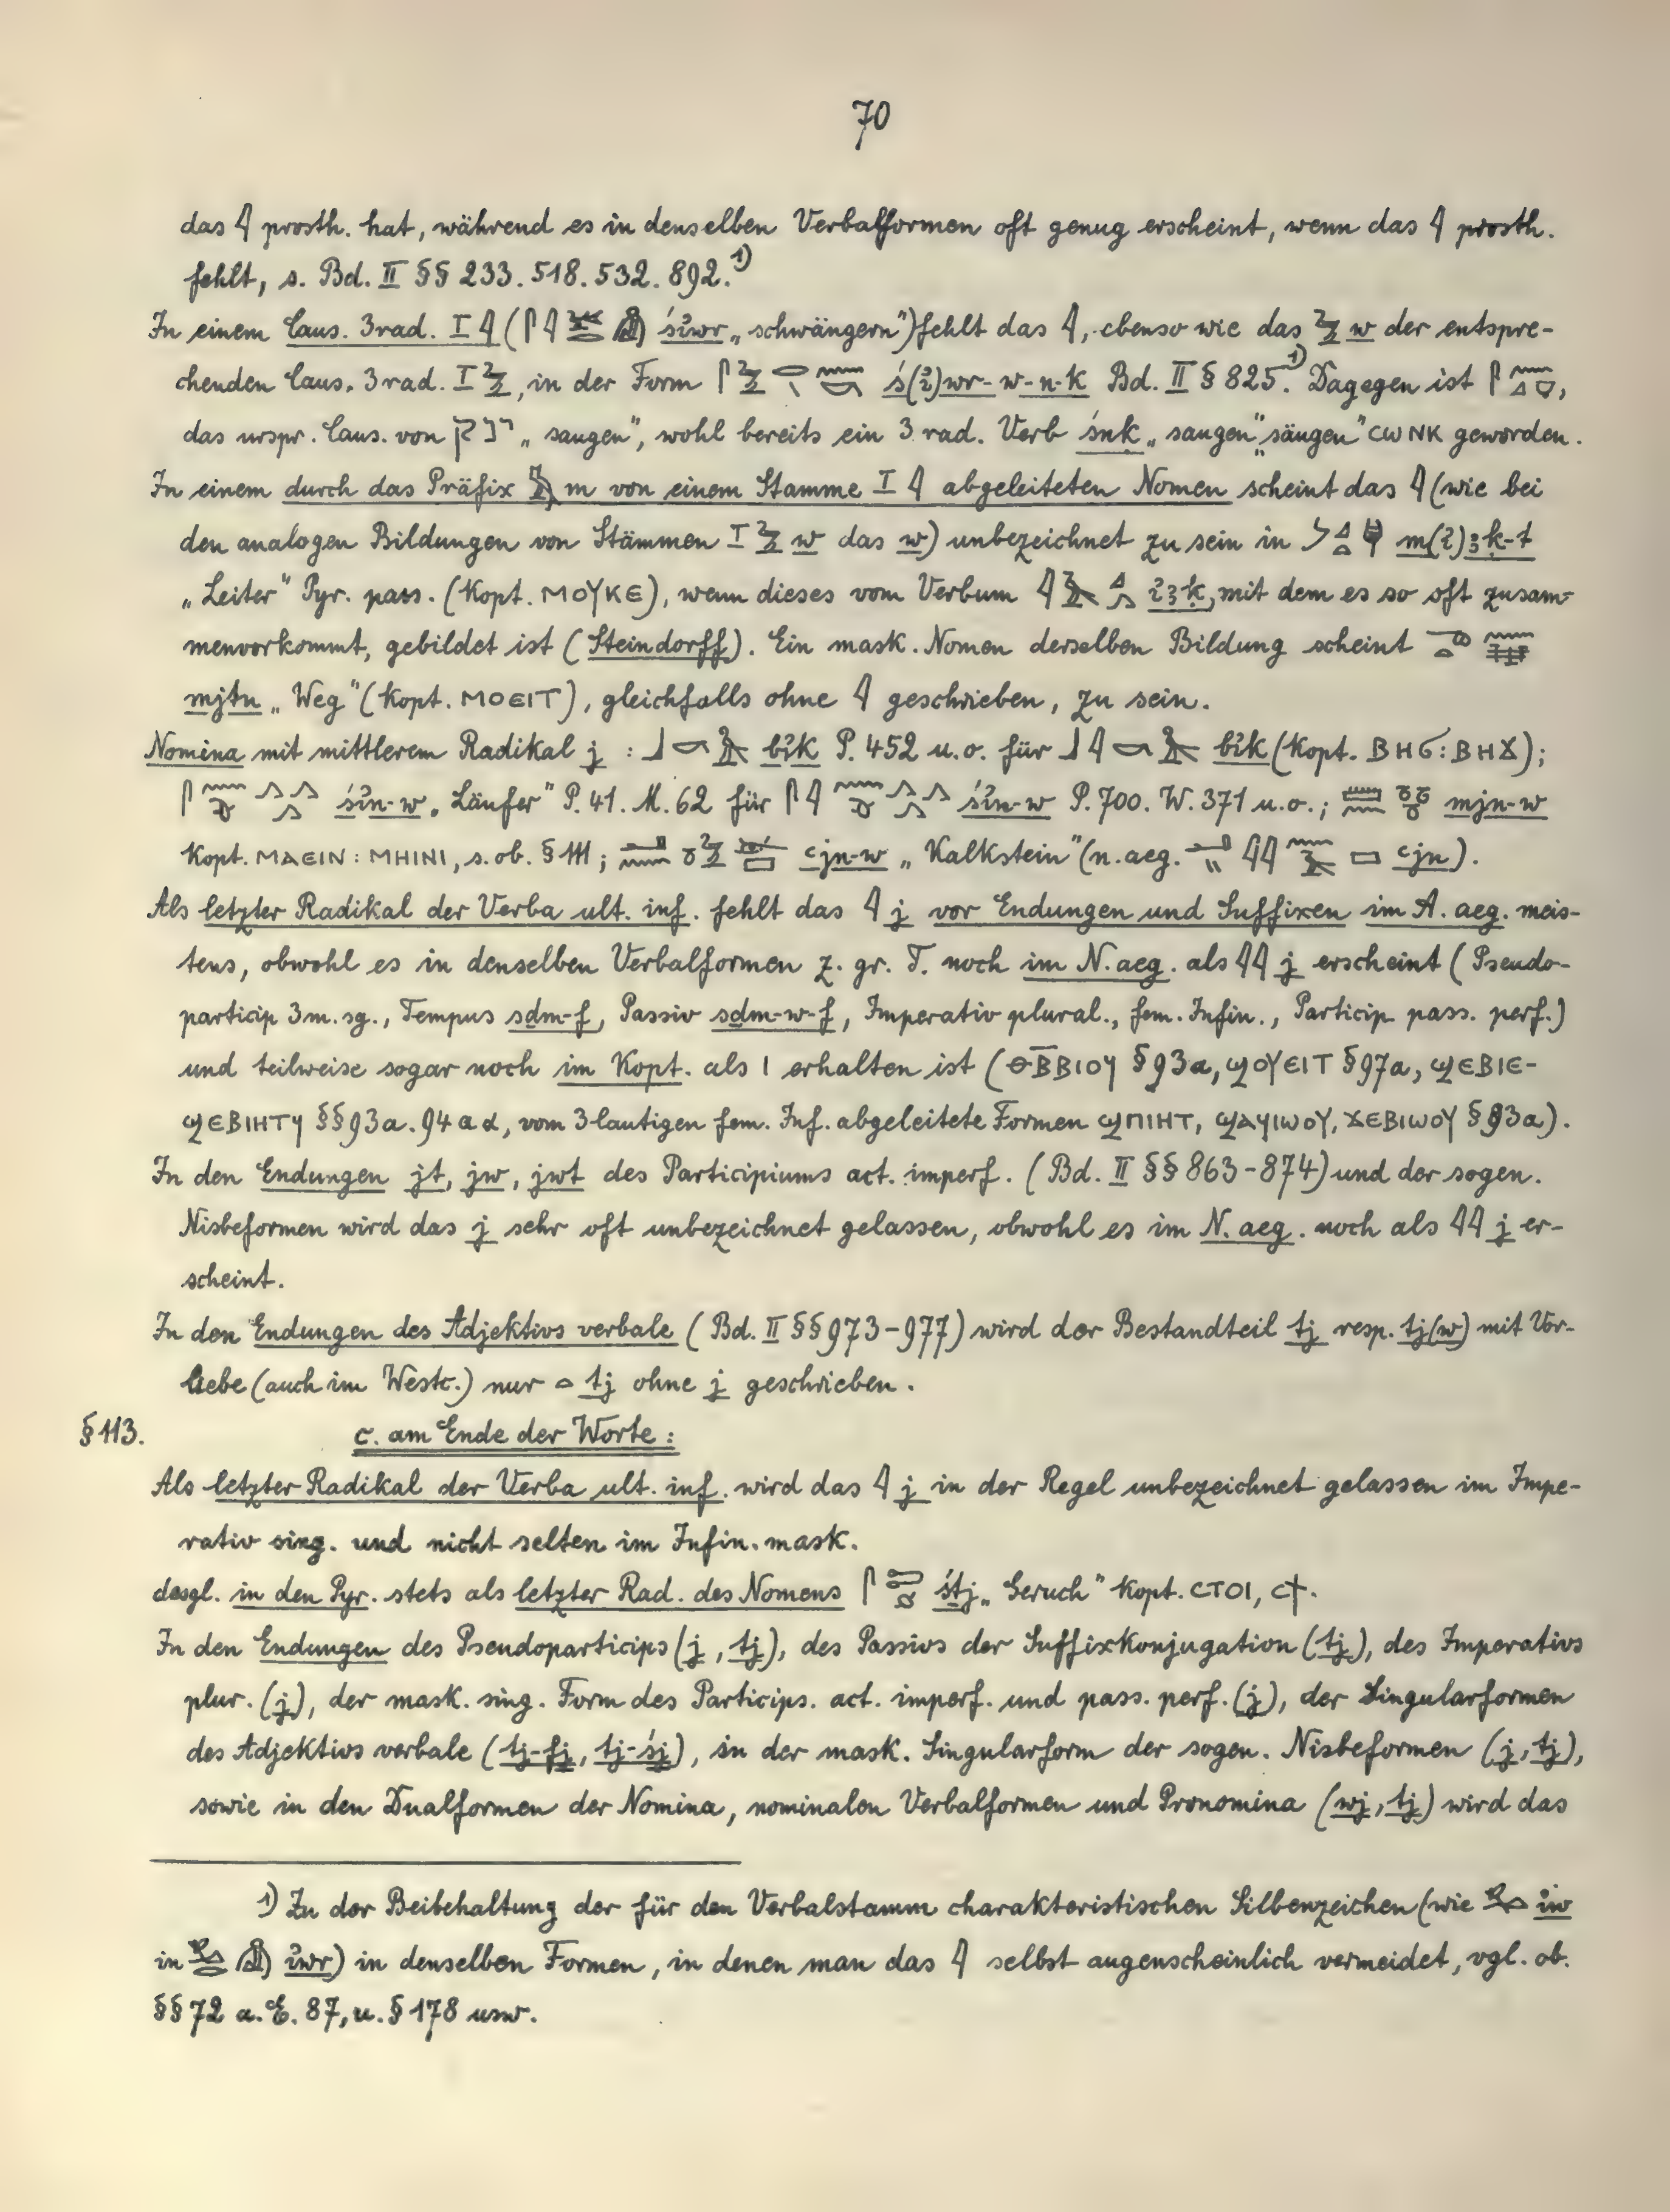 70
das 𓇋 prosth. hat, während es in denselben Verbalformen oft genug erscheint, wenn das 𓇋 prosth.
fehlt, s. Bd. II §§ 233. 518. 532. 892.¹⁾
In einem Caus. 3rad. I 𓇋 (𓋴𓇋 śı͗wr „schwängern") fehlt das 𓇋, ebenso wie das 𓅱 w der entspre-
chenden Caus. 3rad. I 𓅱, in der Form 𓋴𓅱 ś(ı͗)wr-w-n-k Bd. II § 825.¹⁾ Dagegen ist 𓋴𓈖𓈎𓎡,
das urspr. Caus. von „saugen", wohl bereits ein 3rad. Verb śnk „saugen" „säugen" ⲥⲱⲛⲕ geworden.
In einem durch das Präfix 𓅓 m von einem Stamme I 𓇋 abgeleiteten Nomen scheint das 𓇋 (wie bei
den analogen Bildungen von Stämmen I 𓅱 w das w) unbezeichnet zu sein in m(ı͗)ꜣḳ-t
„Leiter" Pyr. pass. (Kopt. ⲙⲟⲩⲕⲉ), wenn dieses vom Verbum 𓇋𓄿𓈎𓂻 ı͗ꜣḳ, mit dem es so oft zusam-
menvorkommt, gebildet ist (Steindorff). Ein mask. Nomen derselben Bildung scheint
mjtn „Weg" (Kopt. ⲙⲟⲉⲓⲧ), gleichfalls ohne 𓇋 geschrieben, zu sein.
Nomina mit mittlerem Radikal j : 𓃀𓎡𓅆 bı͗k P. 452 u.o. für 𓃀𓇋𓎡𓅆 bı͗k (Kopt. ⲃⲏϭ : ⲃⲏϫ);
𓋴𓈖 𓂻𓂻𓂻 śı͗n-w „Läufer" P. 41. M. 62 für 𓋴𓇋𓈖 𓂻𓂻𓂻 śı͗n-w P. 700. W. 371 u.o.; 𓏠𓈖 𓏌𓏌𓏌 mjn-w
Kopt. ⲙⲁⲉⲓⲛ : ⲙⲏⲓⲛⲓ, s. ob. § 111; 𓂝𓈖𓏌𓅱 ꜥjn-w „Kalkstein" (n.aeg. ꜥjn).
Als letzter Radikal der Verba ult. inf. fehlt das 𓇋 j vor Endungen und Suffixen im A. aeg. meis-
tens, obwohl es in denselben Verbalformen z. gr. T. noch im N. aeg. als 𓇋𓇋 j erscheint (Pseudo-
particip 3m. sg., Tempus sdm-f, Passiv sdm-w-f, Imperativ plural., fem. Infin., Particip pass. perf.)
und teilweise sogar noch im Kopt. als ⲓ erhalten ist (ⲑⲃ̅ⲃⲓⲟⲩ § 93a, ϣⲟⲩⲉⲓⲧ § 97a, ϣⲉⲃⲓⲉ-
ϣⲉⲃⲓⲏⲧϥ §§ 93a. 94 a α, vom 3lautigen fem. Inf. abgeleitete Formen ϣⲡⲓⲏⲧ, ϣⲁϥⲓⲱⲟⲩ, ϫⲉⲃⲓⲱⲟⲩ § 93a).
In den Endungen jt, jw, jwt des Participiums act. imperf. (Bd. II §§ 863-874) und der sogen.
Nisbeformen wird das j sehr oft unbezeichnet gelassen, obwohl es im N. aeg. noch als 𓇋𓇋 j er-
scheint.
In den Endungen des Adjektivs verbale (Bd. II §§ 973-977) wird der Bestandteil tj resp. tj(w) mit Vor-
liebe (auch im Westc.) nur 𓏏 tj ohne j geschrieben.
§ 113. c. am Ende der Worte :
Als letzter Radikal der Verba ult. inf. wird das 𓇋 j in der Regel unbezeichnet gelassen im Impe-
rativ sing. und nicht selten im Infin. mask.
desgl. in den Pyr. stets als letzter Rad. des Nomens śṯj „Geruch" Kopt. ⲥⲧⲟⲓ, ⲥϯ.
In den Endungen des Pseudoparticips (j, tj), des Passivs der Suffixkonjugation (tj), des Imperativs
plur. (j), der mask. sing. Form des Particips. act. imperf. und pass. perf. (j), der Singularformen
des Adjektivs verbale (tj-fj, tj-śj), in der mask. Singularform der sogen. Nisbeformen (j, tj),
sowie in den Dualformen der Nomina, nominalen Verbalformen und Pronomina (wj, tj) wird das
1) Zu der Beibehaltung der für den Verbalstamm charakteristischen Silbenzeichen (wie ı͗w
in ı͗wr) in denselben Formen, in denen man das 𓇋 selbst augenscheinlich vermeidet, vgl. ob.
§§ 72 a. E. 87, u. § 178 usw.